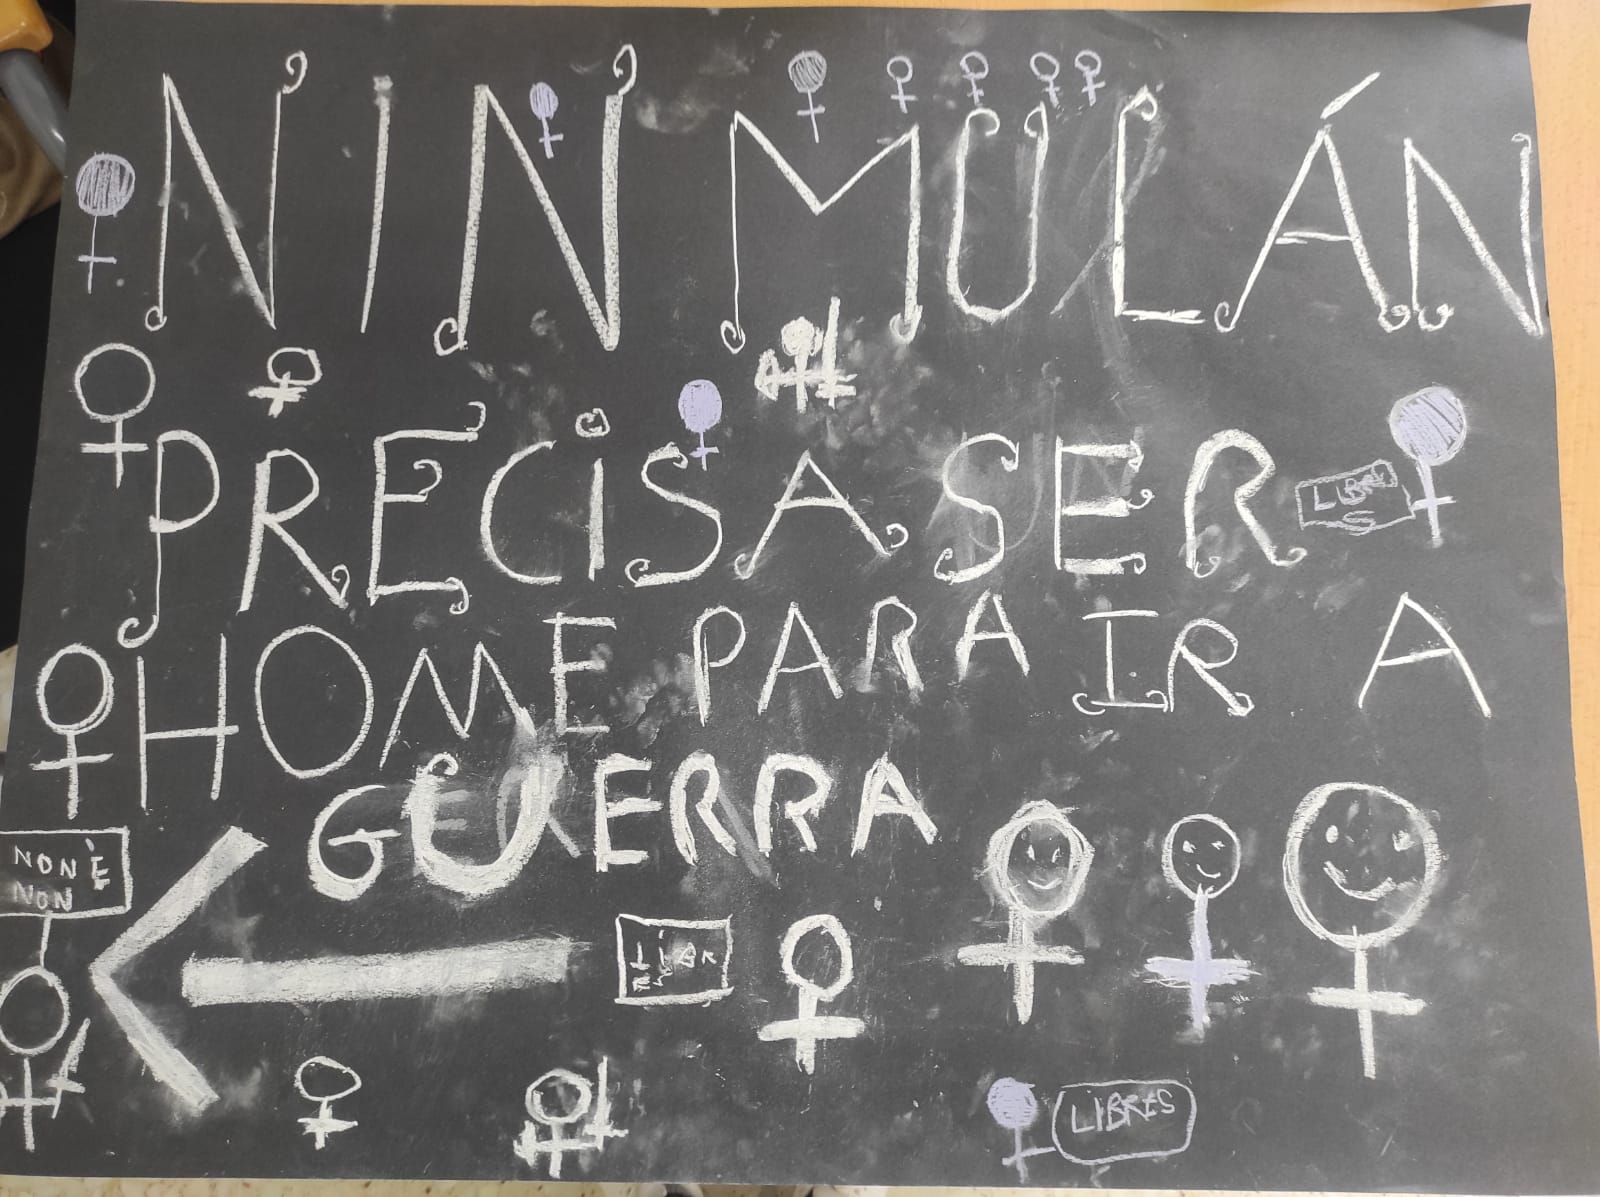 NIN MULÁN
PRECISA SER
LIBRES
HOME PARA IR A
GUERRA
NON È
NON
LIBRES